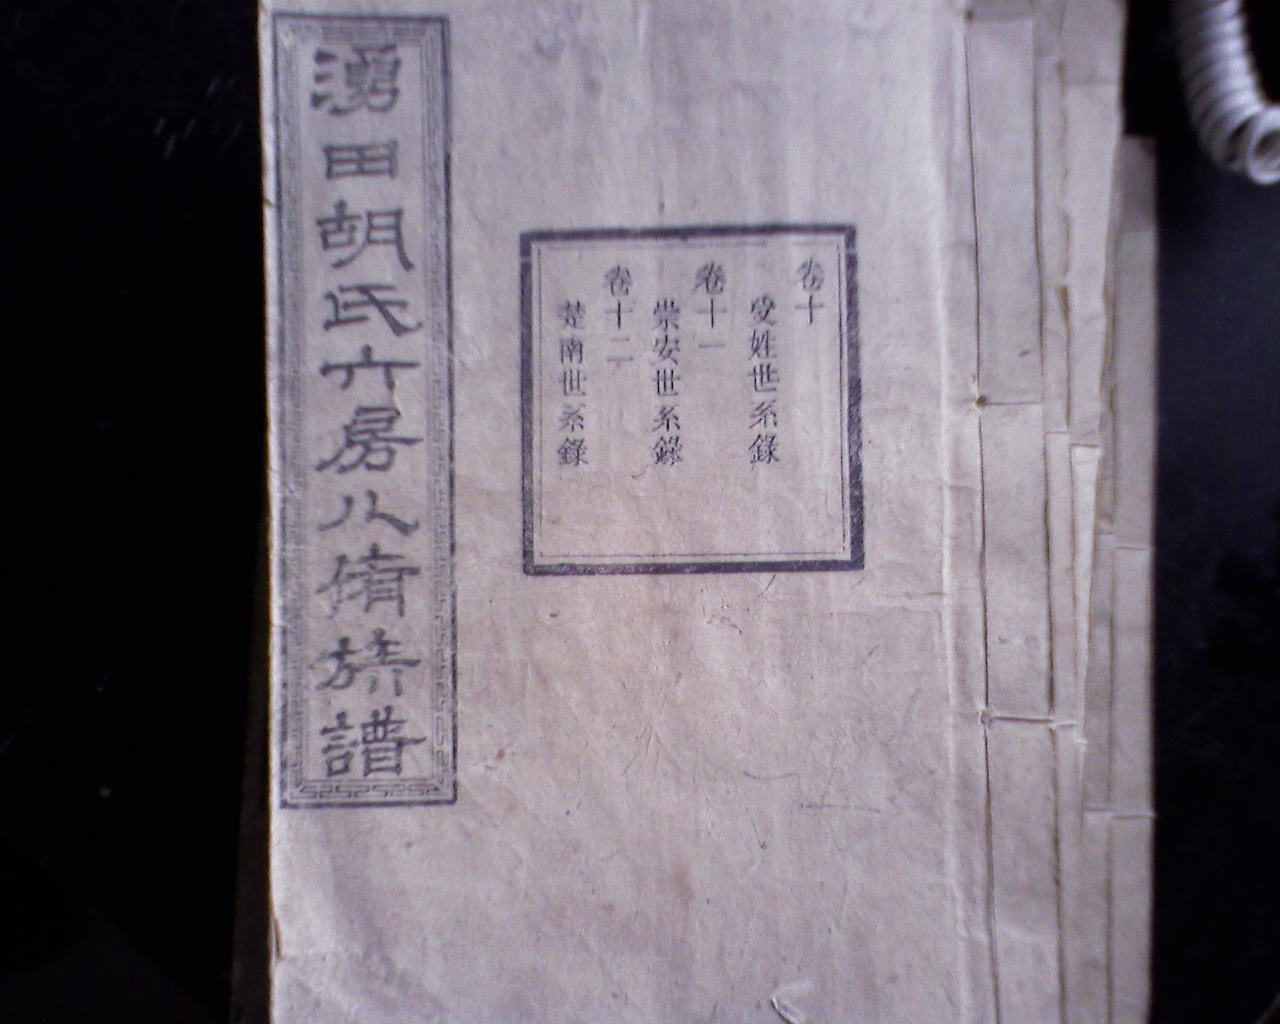 湧田胡氏六房八脩族譜
卷十
受姓世系錄
卷十一
崇安世系錄
卷十二
楚南世系錄